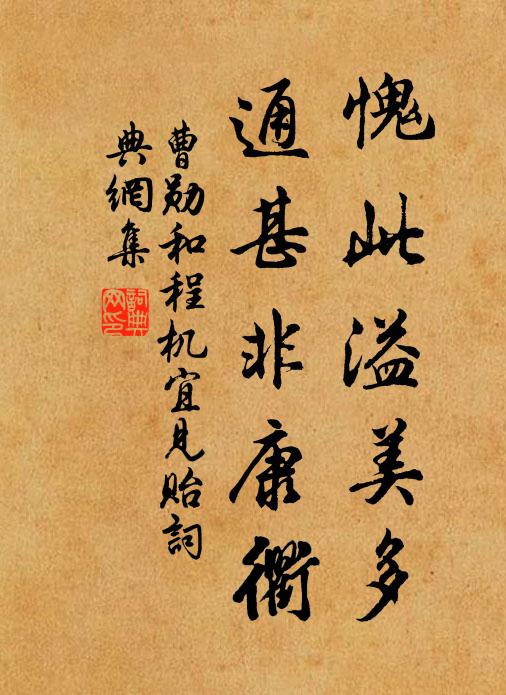 愧此溢美多
通甚非康衢
曹勋和程机宜见贻词
典網集
詞典網印